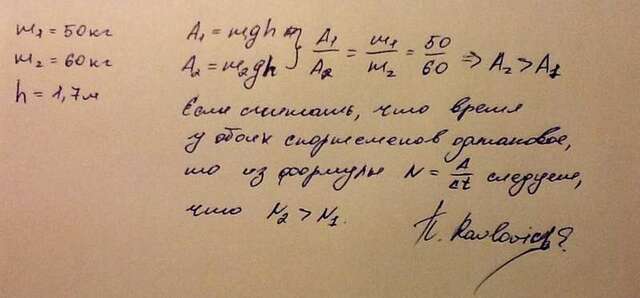 m₁ = 50 кг
m₂ = 60 кг
h = 1,7 м
A₁ = mgh
A₂ = m₂gh } A₁/A₂ = m₁/m₂ = 50/60 => A₂ > A₁
Если считать, что время
у обоих спортсменов одинаковое,
то из формулы N = A/Δt следует,
что N₂ > N₁.